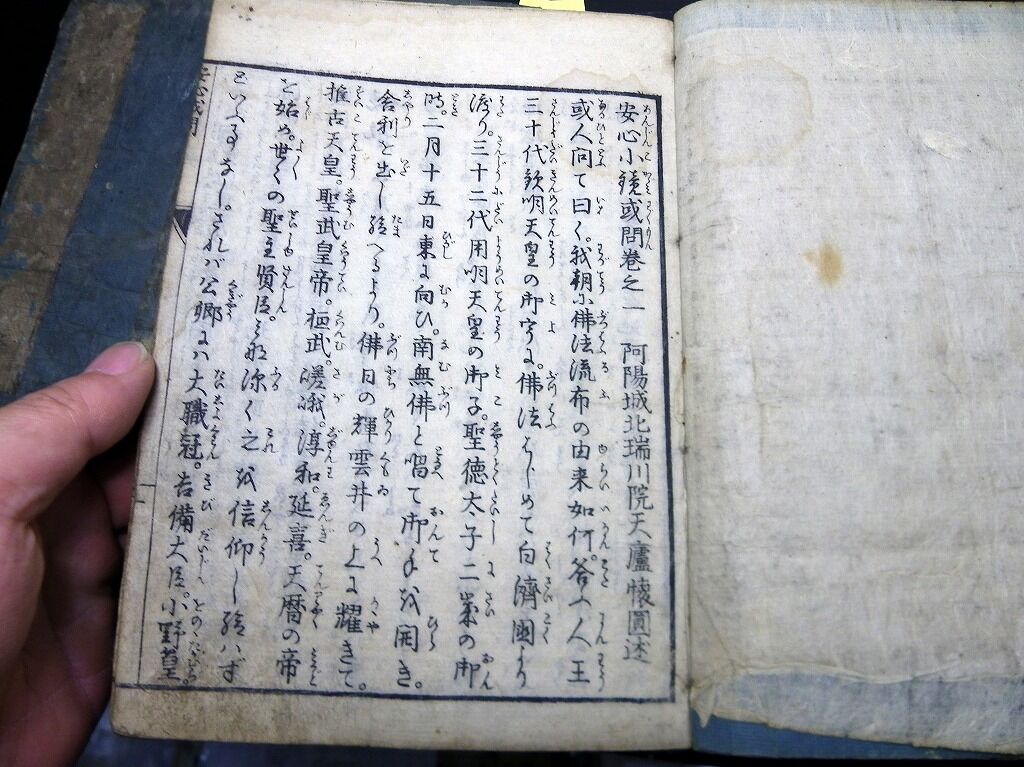 安心小鏡或問卷之一　阿陽城北瑞川院天廬懐圓述
或人問て曰く。我朝に佛法流布の由来如何。答ふ人王
三十代欽明天皇の御宇に。佛法はじめて百濟國より
渡り。三十二代用明天皇の御子。聖徳太子二歳の御
時。二月十五日東に向ひ。南無佛と唱て御手を開き。
舎利を出し給へるより。佛日の輝雲井の上に耀きて。
推古天皇。聖武皇帝。桓武。嵯峨。淳和。延喜。天暦の帝
を始め。世々の聖主賢臣。みな深く之を信仰し給はず
といふ事なし。されば公卿には大職冠。吉備大臣。小野篁。